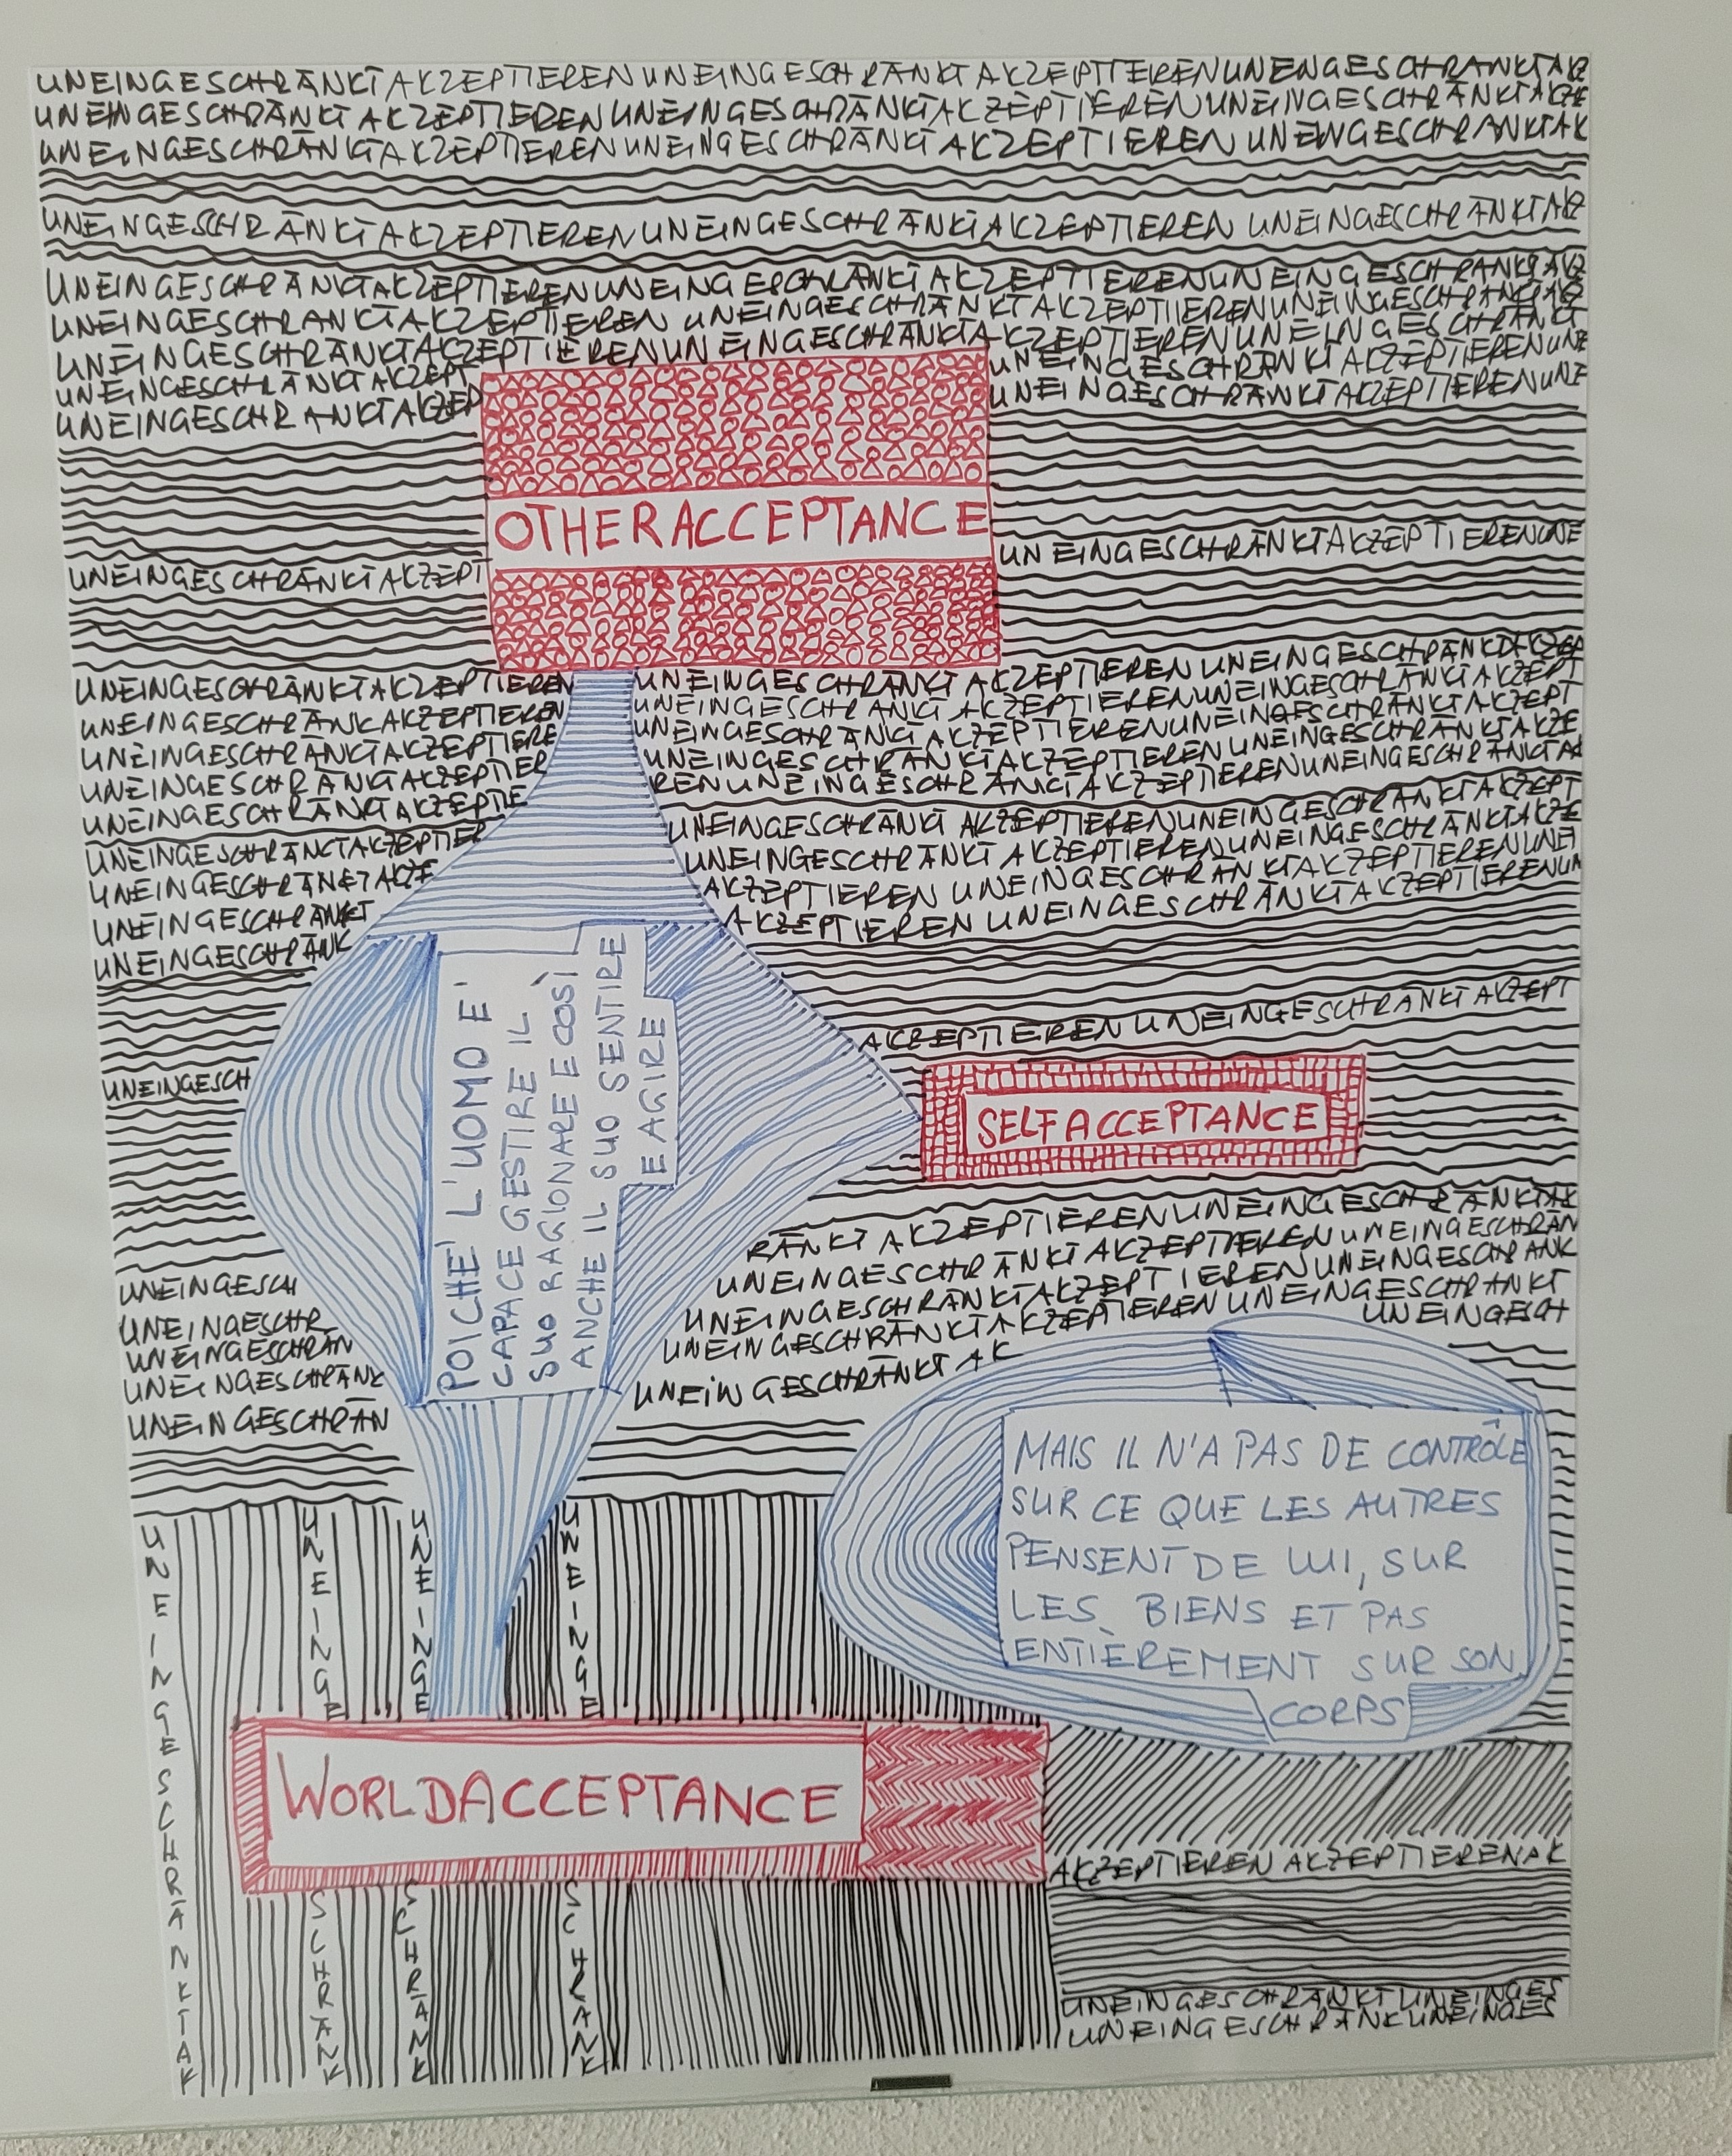 UNEINGESCHRÄNKT AKZEPTIEREN UNEINGESCHRÄNKT AKZEPTIEREN UNENGESCHRANKT AKZ
UNEINGESCHRÄNKT AKZEPTIEREN UNEINGESCHRÄNKT AKZEPTIEREN UNEINGESCHRÄNKT AKZE
UNEINGESCHRÄNKT AKZEPTIEREN UNEINGESCHRÄNKT AKZEPTIEREN UNEINGESCHRANKT AK
UNEINGESCHRÄNKT AKZEPTIEREN UNEINGESCHRÄNKT AKZEPTIEREN UNEINGESCHRÄNKT AKZ
UNEINGESCHRÄNKT AKZEPTIEREN UNEINGESCHRÄNKT AKZEPTIEREN UNEINGESCHRANKT AKZ
UNEINGESCHRANKT AKZEPTIEREN UNEINGESCHRÄNKT AKZEPTIEREN UNEINGESCHRÄNKT AKZ
UNEINGESCHRÄNKT AKZEPTIEREN UNEINGESCHRÄNKT AKZEPTIEREN UNEINGESCHRÄNKT
UNEINGESCHRÄNKT AKZEPT
UNEINGESCHRÄNKT AKZEPTIEREN UNE
UNEINGESCHRANKT AKZEP
UNEINGESCHRÄNKT AKZEPTIEREN UNE
OTHERACCEPTANCE
UNEINGESCHRÄNKT AKZEPT
UNEINGESCHRÄNKT AKZEPTIEREN UNE
UNEINGESCHRÄNKT AKZEPTIEREN
UNEINGESCHRÄNKT AKZEPTIEREN UNEINGESCHRÄNKT AKZEP
UNEINGESCHRÄNK AKZEPTIEREN
UNEINGESCHRÄNKT AKZEPTIEREN UNEINGESCHRÄNKT AKZEPT
UNEINGESCHRÄNKT AKZEPTIERE
UNEINGESCHRÄNKT AKZEPTIEREN UNEINGESCHRÄNKT AKZEPT
UNEINGESCHRÄNKT AKZEPTIER
UNEINGESCHRÄNKT AKZEPTIEREN UNEINGESCHRÄNKT AKZE
UNEINGESCHRÄNKT AKZEPTIE
REN UNEINGESCHRÄNKT AKZEPTIEREN UNEINGESCHRÄNKT AK
UNEINGESCHRÄNKT AKZEPTIER
UNEINGESCHRÄNKT AKZEPTIEREN UNEINGESCHRÄNKT AKZEPT
UNEINGESCHRÄNKT AKZE
UNEINGESCHRÄNKT AKZEPTIEREN UNEINGESCHRÄNKT AKZE
UNEINGESCHRÄNKT
AKZEPTIEREN UNEINGESCHRÄNKT AKZEPTIEREN UNEI
UNEINGESCHRÄNK
AKZEPTIEREN UNEINGESCHRÄNKT AKZEPTIEREN UN
AKZEPTIEREN UNEINGESCHRÄNKT AKZEPT
UNEINGESCH
POICHE' L'UOMO E'
CAPACE GESTIRE IL
SUO RAGIONARE E COSÌ
ANCHE IL SUO SENTIRE
E AGIRE
SELF ACCEPTANCE
RÄNKT AKZEPTIEREN UNEINGESCHRÄNKT AK
UNEINGESCHRÄNKT AKZEPTIEREN UNEINGESCHRÄN
UNEINGESCHRÄNKT AKZEPTIEREN UNEINGESCHRÄNK
UNEINGESCHRÄNKT AKZEPTIEREN UNEINGESCHRANKT
UNEINGESCH
UNEINGESCHRÄNKT AK
UNEINGESCH
UNEINGESCHR
UNEINGESCHRÄN
UNEINGESCHRÄNK
UNEINGESCHRÄN
MAIS IL N'A PAS DE CONTRÔLE
SUR CE QUE LES AUTRES
PENSENT DE LUI, SUR
LES BIENS ET PAS
ENTIÈREMENT SUR SON
CORPS
UNEINGESCHRÄNKTAK
UNEINGE
UNEINGE
UNEINGE
WORLDACCEPTANCE
SCHRÄNK
SCHRÄNK
SCHRÄNK
AKZEPTIEREN AKZEPTIEREN AK
UNEINGESCHRÄNKT UNEINGES
UNEINGESCHRÄNK UNEINGES